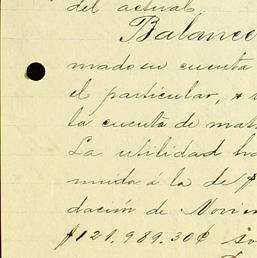 del actual.
Balance
mado su cuenta
el particular, &
la cuenta de mat
La utilidad ha
unida á la de $
dación de Novie
$121.989.30¢ so